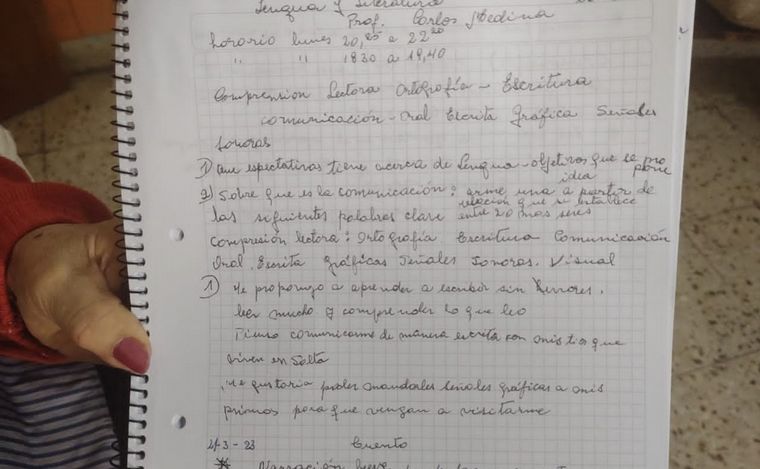 Lengua y Literatura
Prof. Carlos Medina
horario lunes 20,25 a 22
" " 1830 a 19,40
Comprension Lectora Ortografía - Escritura
comunicación - Oral Escrita Gráfica Señales
sonoras
1) que espectativas tiene acerca de Lengua - objetivos que se pro
pone
2) Sobre que es la comunicación: arme una idea a partir de
las siguientes palabras clave relacion que se establece entre 2 o mas seres
Compresión lectora: Ortografía Escritura Comunicación
Oral. Escrita gráficas Señales Sonoras. Visual
1) Me propongo a aprender a escribir sin errores.
leer mucho y comprender lo que leo
Pienso comunicarme de manera escrita con mis tios que
viven en Salta
Me gustaria poder mandarles señales gráficas a mis
primos para que vengan a visitarme
21-3-23 Cuento
* Narración breve